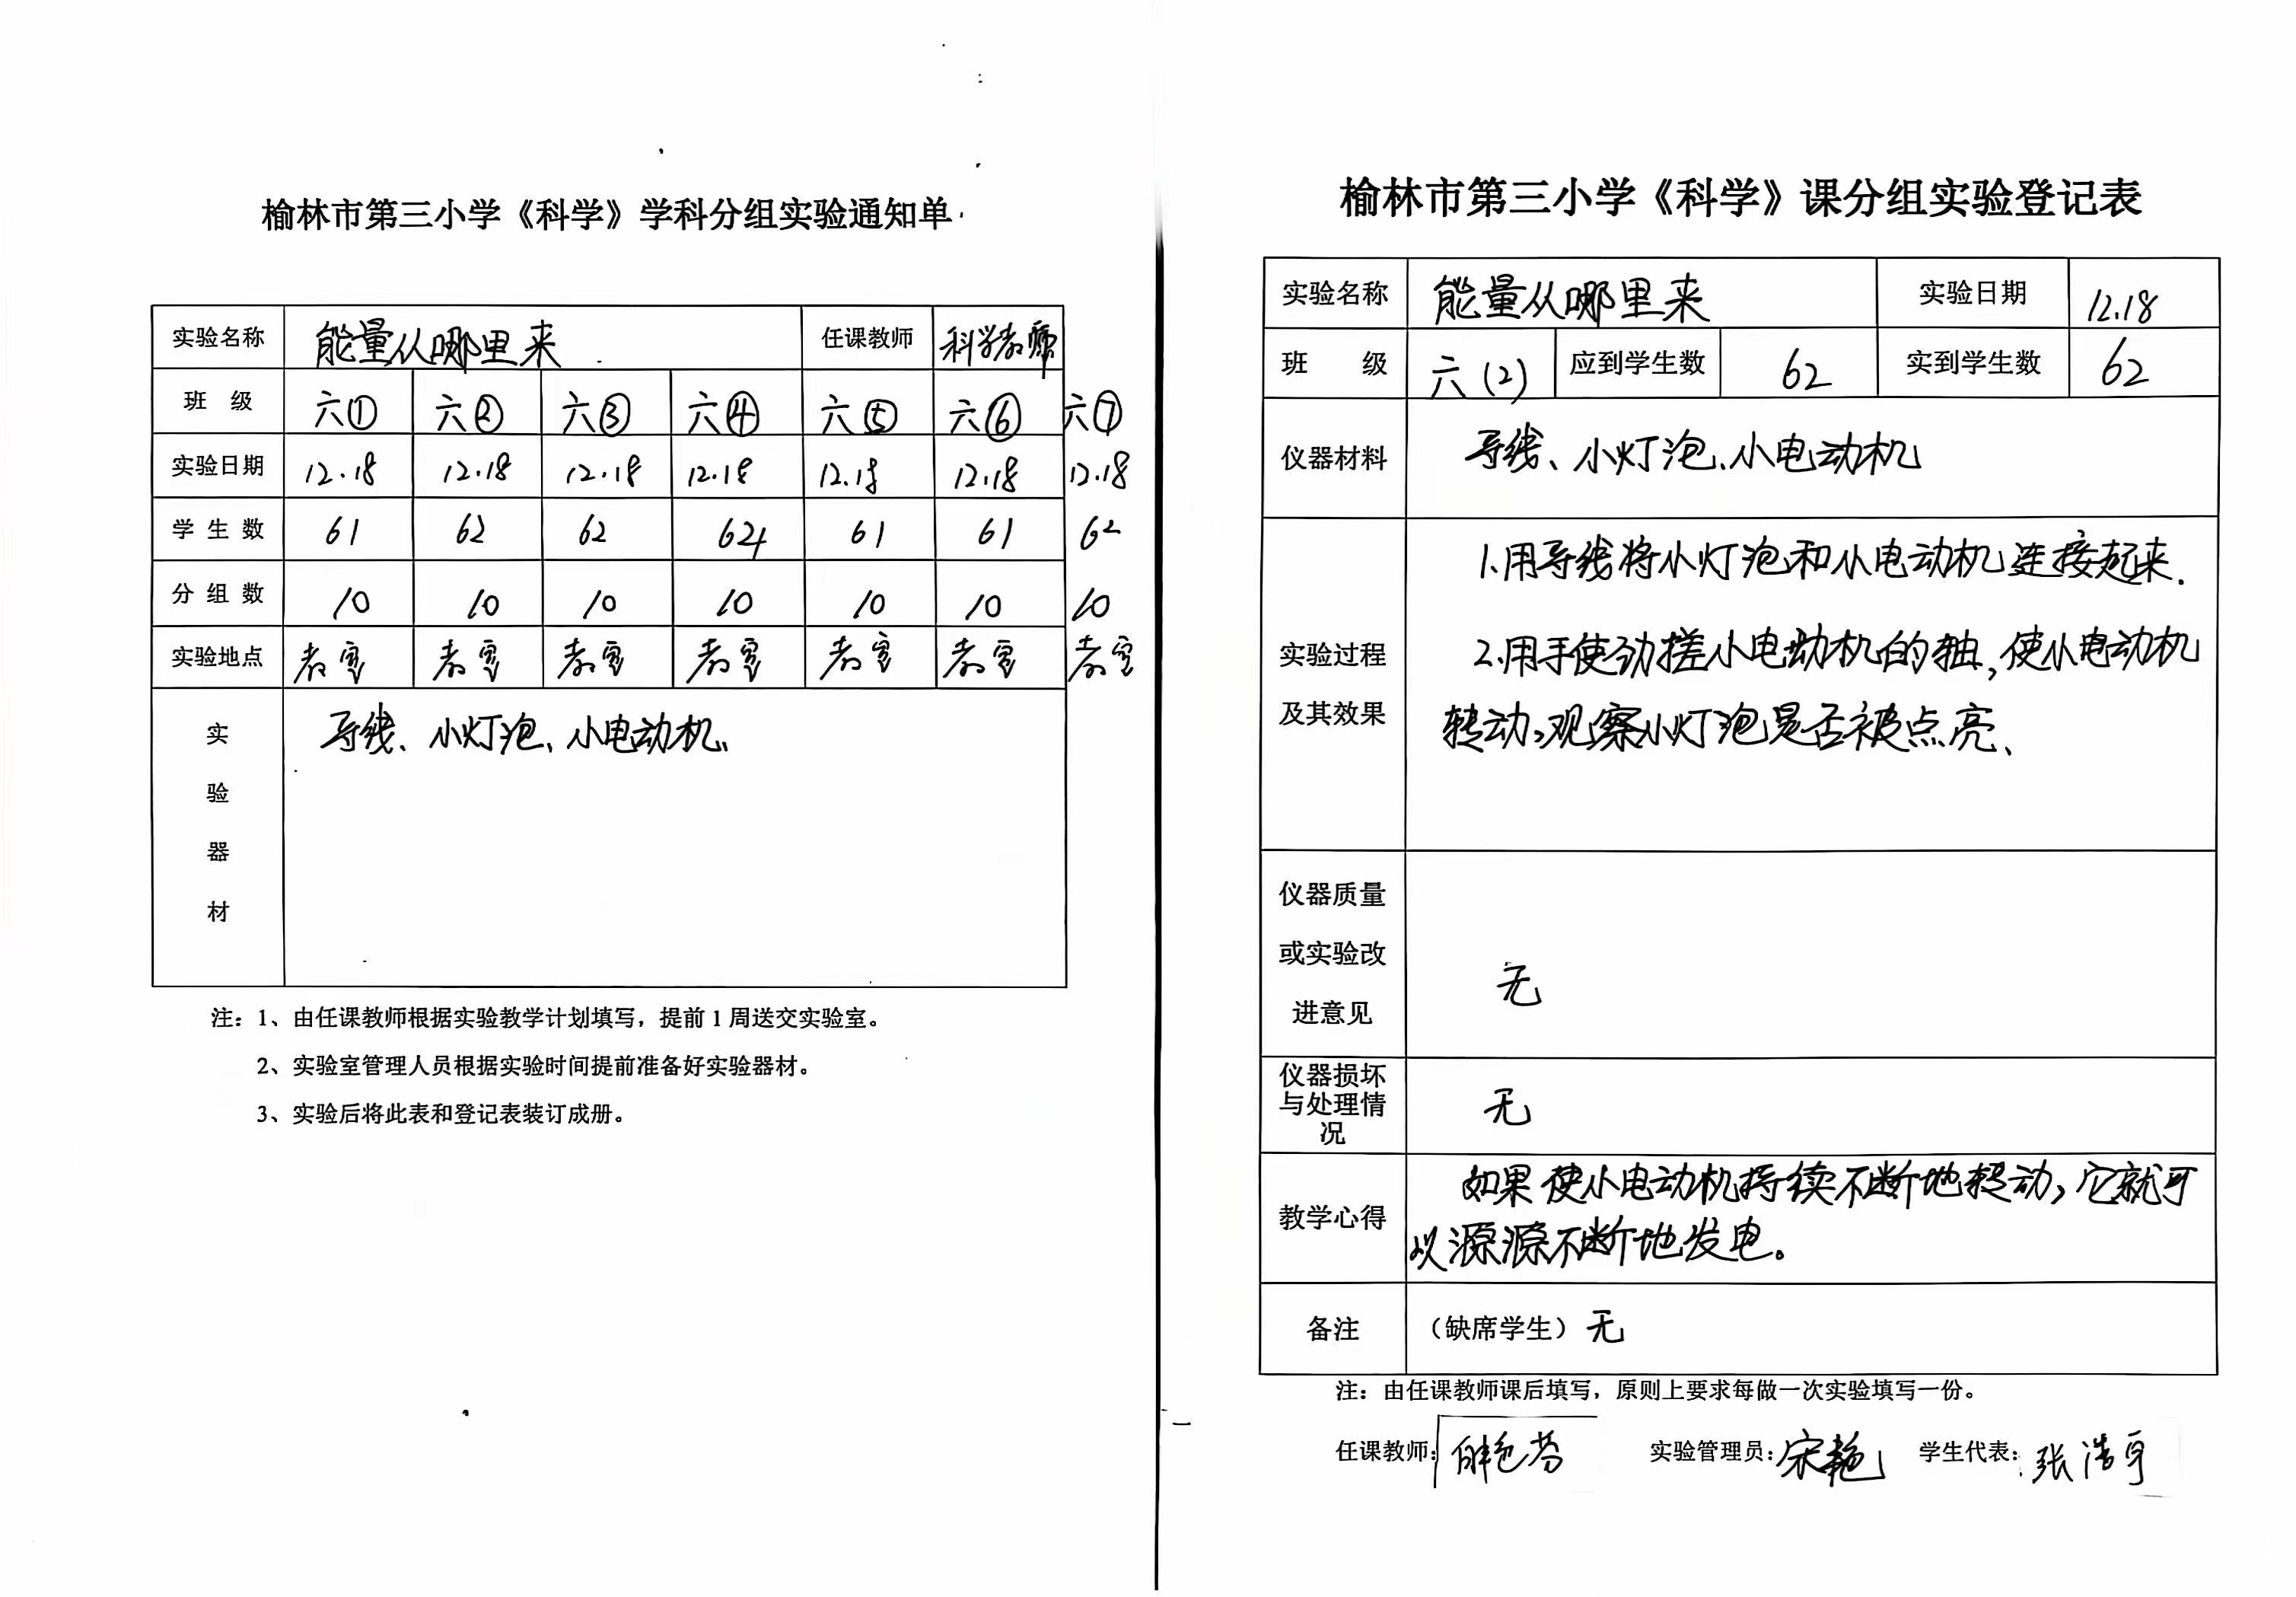 榆林市第三小学《科学》学科分组实验通知单
实验名称 能量从哪里来 任课教师 科学教师
班 级 六① 六② 六③ 六④ 六⑤ 六⑥ 六⑦
实验日期 12.18 12.18 12.18 12.18 12.18 12.18 12.18
学生数 61 62 62 624 61 61 62
分组数 10 10 10 10 10 10 10
实验地点 教室 教室 教室 教室 教室 教室 教室
实验器材 导线、小灯泡、小电动机、
注：1、由任课教师根据实验教学计划填写，提前1周送交实验室。
2、实验室管理人员根据实验时间提前准备好实验器材。
3、实验后将此表和登记表装订成册。
榆林市第三小学《科学》课分组实验登记表
实验名称 能量从哪里来 实验日期 12.18
班 级 六(2) 应到学生数 62 实到学生数 62
仪器材料 导线、小灯泡、小电动机
实验过程及其效果
1.用导线将小灯泡和小电动机连接起来.
2.用手使劲搓小电动机的轴,使小电动机
转动,观察小灯泡是否被点亮、
仪器质量或实验改进意见 无
仪器损坏与处理情况 无
教学心得 如果使小电动机持续不断地转动,它就可
以源源不断地发电。
备注 （缺席学生）无
注：由任课教师课后填写，原则上要求每做一次实验填写一份。
任课教师: 实验管理员:宋艳 学生代表:张浩